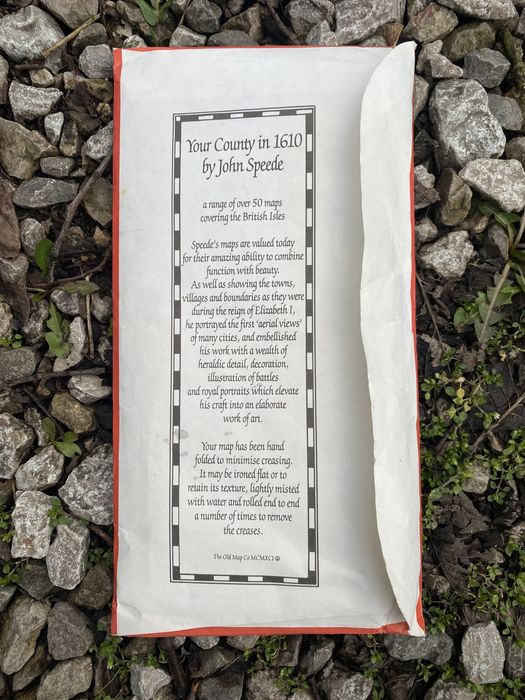 Your County in 1610
by John Speede
a range of over 50 maps
covering the British Isles
Speede's maps are valued today
for their amazing ability to combine
function with beauty.
As well as showing the towns,
villages and boundaries as they were
during the reign of Elizabeth I,
he portrayed the first 'aerial views'
of many cities, and embellished
his work with a wealth of
heraldic detail, decoration,
illustration of battles
and royal portraits which elevate
his craft into an elaborate
work of art.
Your map has been hand
folded to minimise creasing.
It may be ironed flat or to
retain its texture, lightly misted
with water and rolled end to end
a number of times to remove
the creases.
The Old Map Co MCMXCI